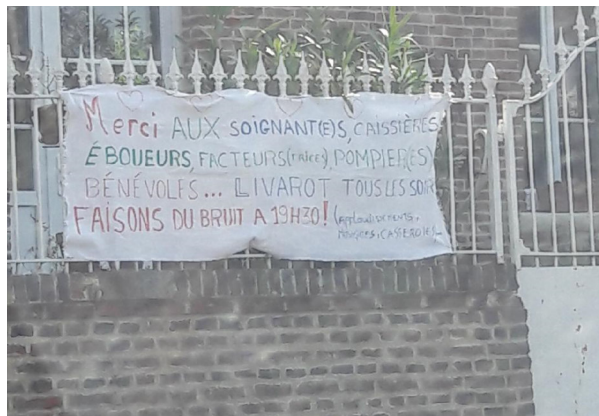 Merci AUX SOIGNANT(E)S, CAISSIÈRES
ÉBOUEURS, FACTEURS(TRICE), POMPIER(ES)
BÉNÉVOLES... LIVAROT TOUS LES SOIR
FAISONS DU BRUIT A 19H30! (applaudissements,
CASSEROLES)...